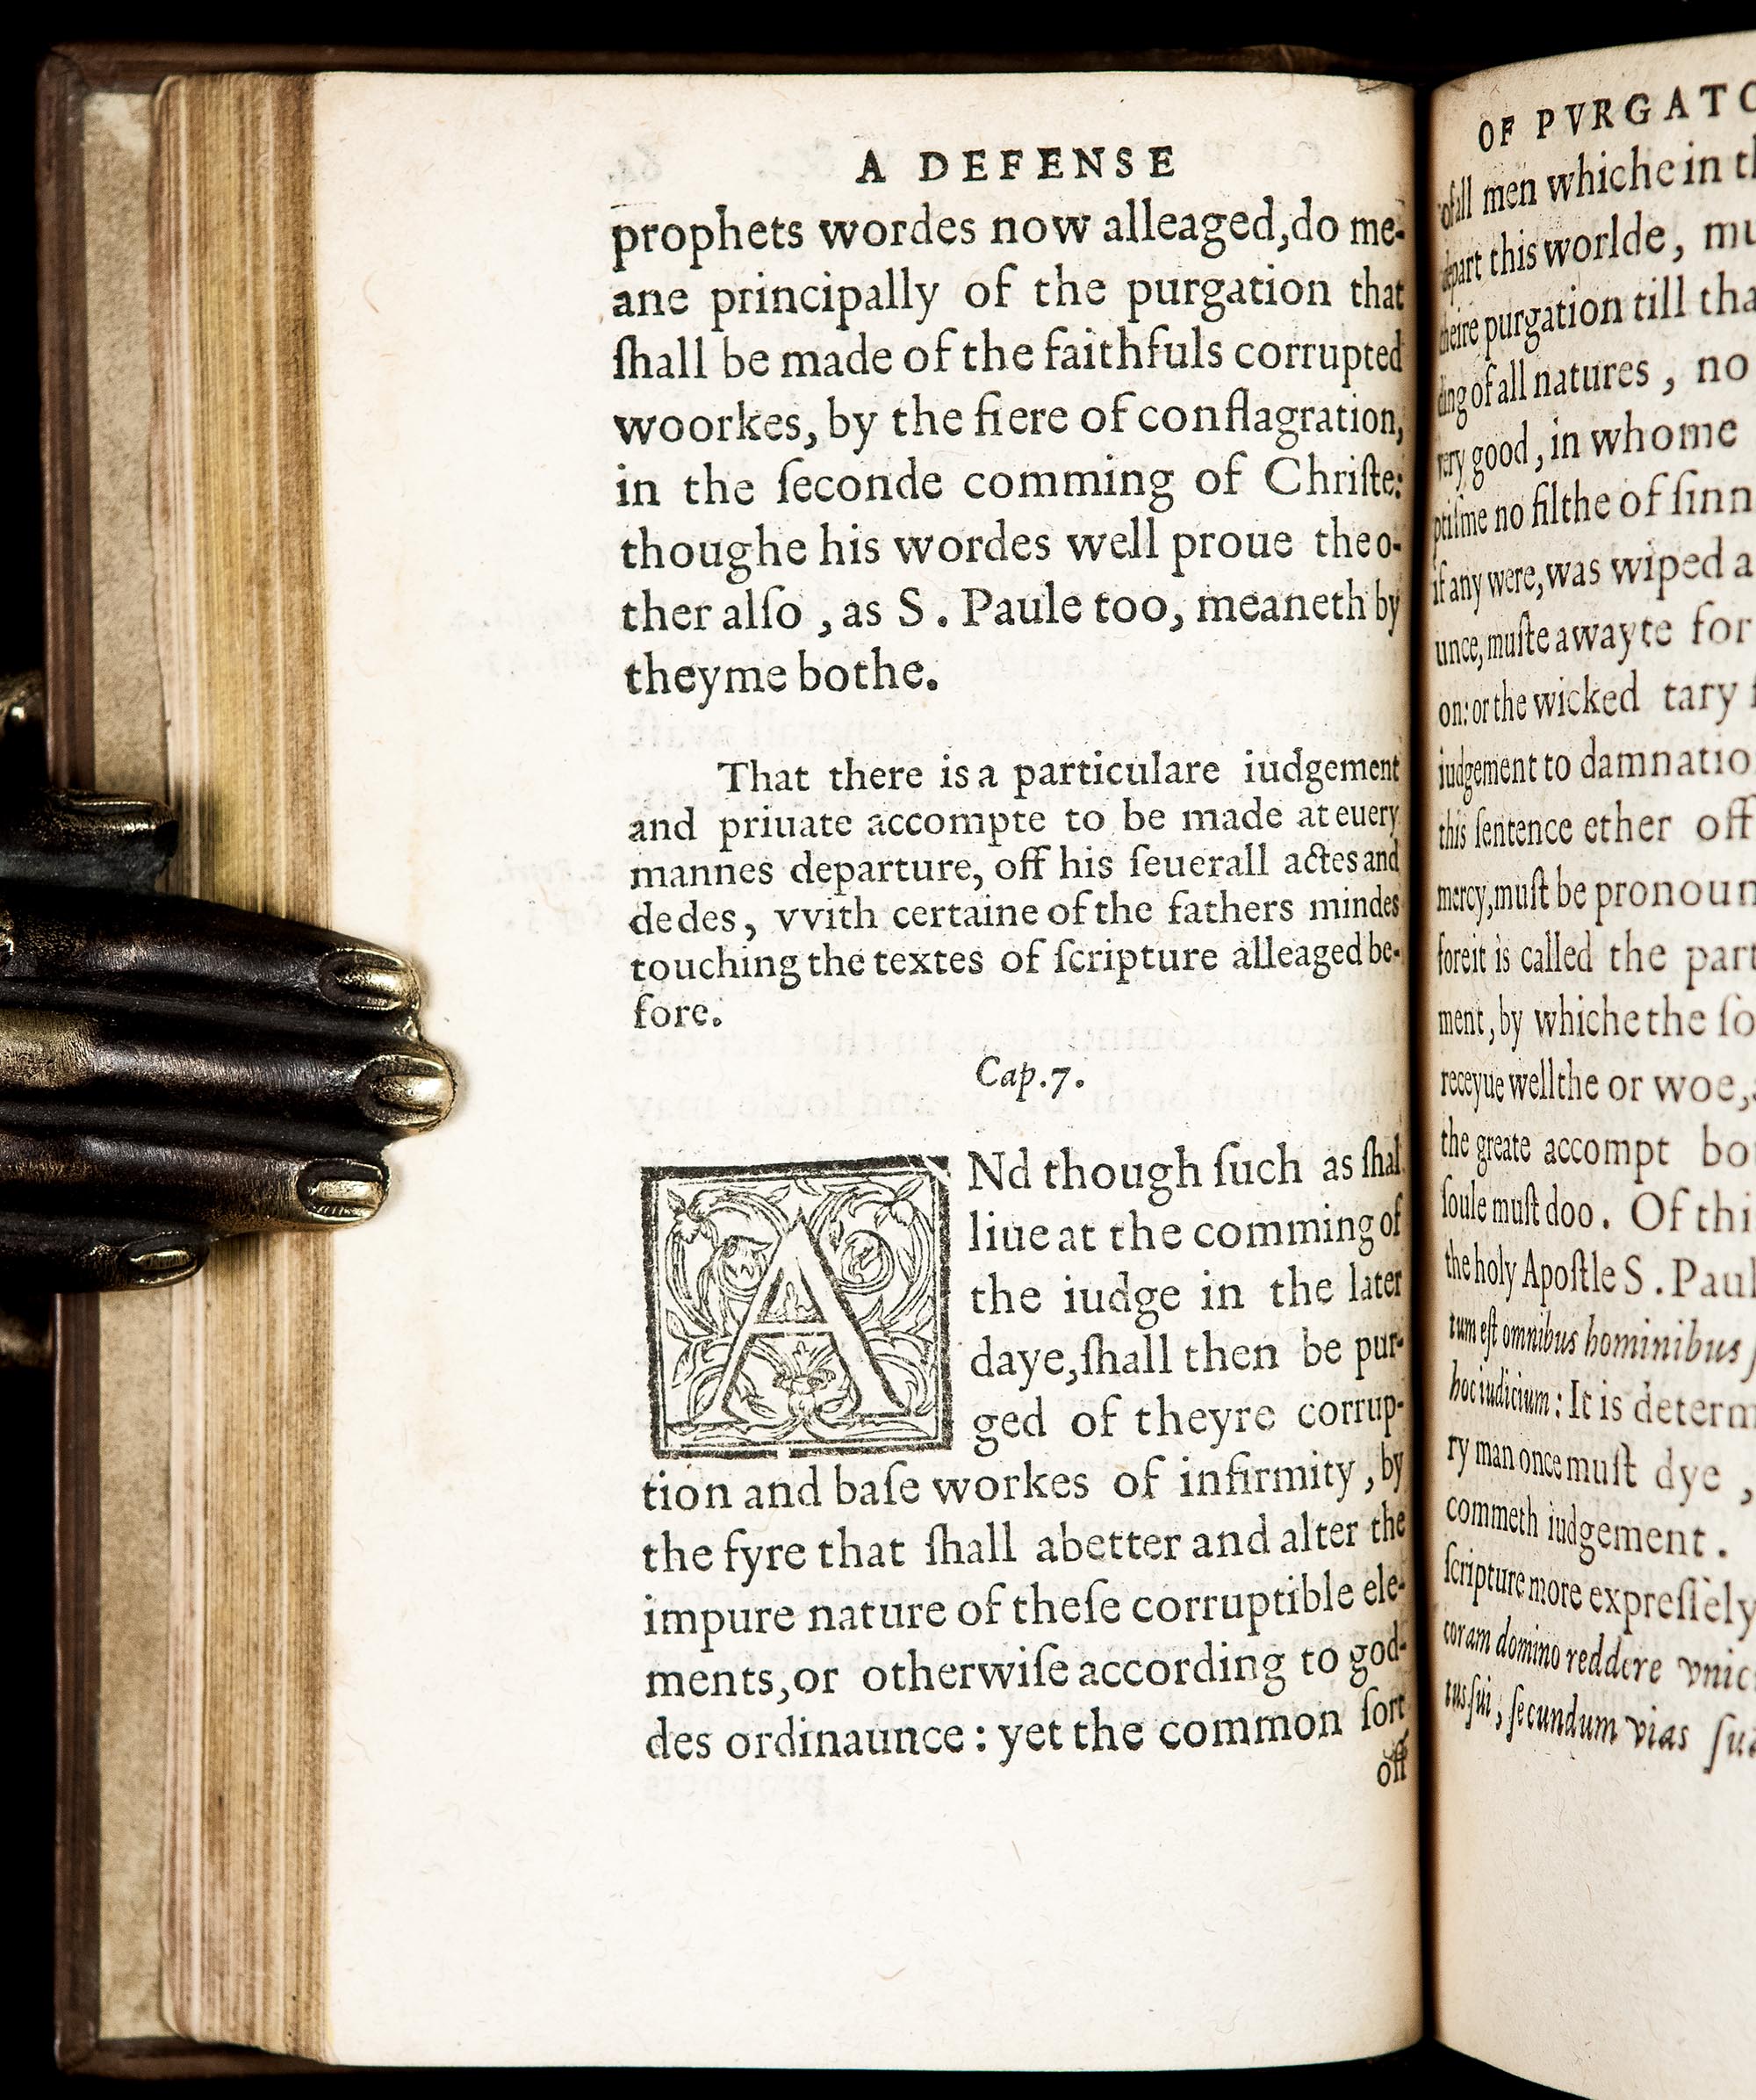 A DEFENSE
prophets wordes now alleaged,do me-
ane principally of the purgation that
ſhall be made of the faithfuls corrupted
woorkes, by the fiere of conflagration,
in the ſeconde comming of Chriſte:
thoughe his wordes well proue the o-
ther alſo , as S . Paule too, meaneth by
theyme bothe.
That there is a particulare iudgement
and priuate accompte to be made at euery
mannes departure, off his ſeuerall actes and
dedes, vvith certaine of the fathers mindes
touching the textes of ſcripture alleaged be-
fore.
Cap.7.
ANd though ſuch as ſhal
liue at the comming of
the iudge in the later
daye,ſhall then be pur-
ged of theyre corrup-
tion and baſe workes of infirmity , by
the fyre that ſhall abetter and alter the
impure nature of theſe corruptible ele-
ments,or otherwiſe according to god-
des ordinaunce : yet the common ſort
off
OF PVRGATO
of all men whiche in
this worlde,
purgation till
of all natures , no
very good , in whome
no filthe of ſinn
if any were,was wiped a
muſte awayte for
on: or the wicked tary
iudgement to damnatio
this ſentence ether off
mercy,muſt be pronoun
foreit is called the part
ment , by whiche the ſo
receyue wellthe or woe,
the greate accompt bo
ſoule muſt doo . Of thi
the holy Apoſtle S . Paul
tum eſt omnibus hominibus
hoc iudicium : It is determ
ry man once muſt dye ,
commeth iudgement .
ſcripture more expreſſely
coram domino reddere vnic
tus ſui , ſecundum vias ſua